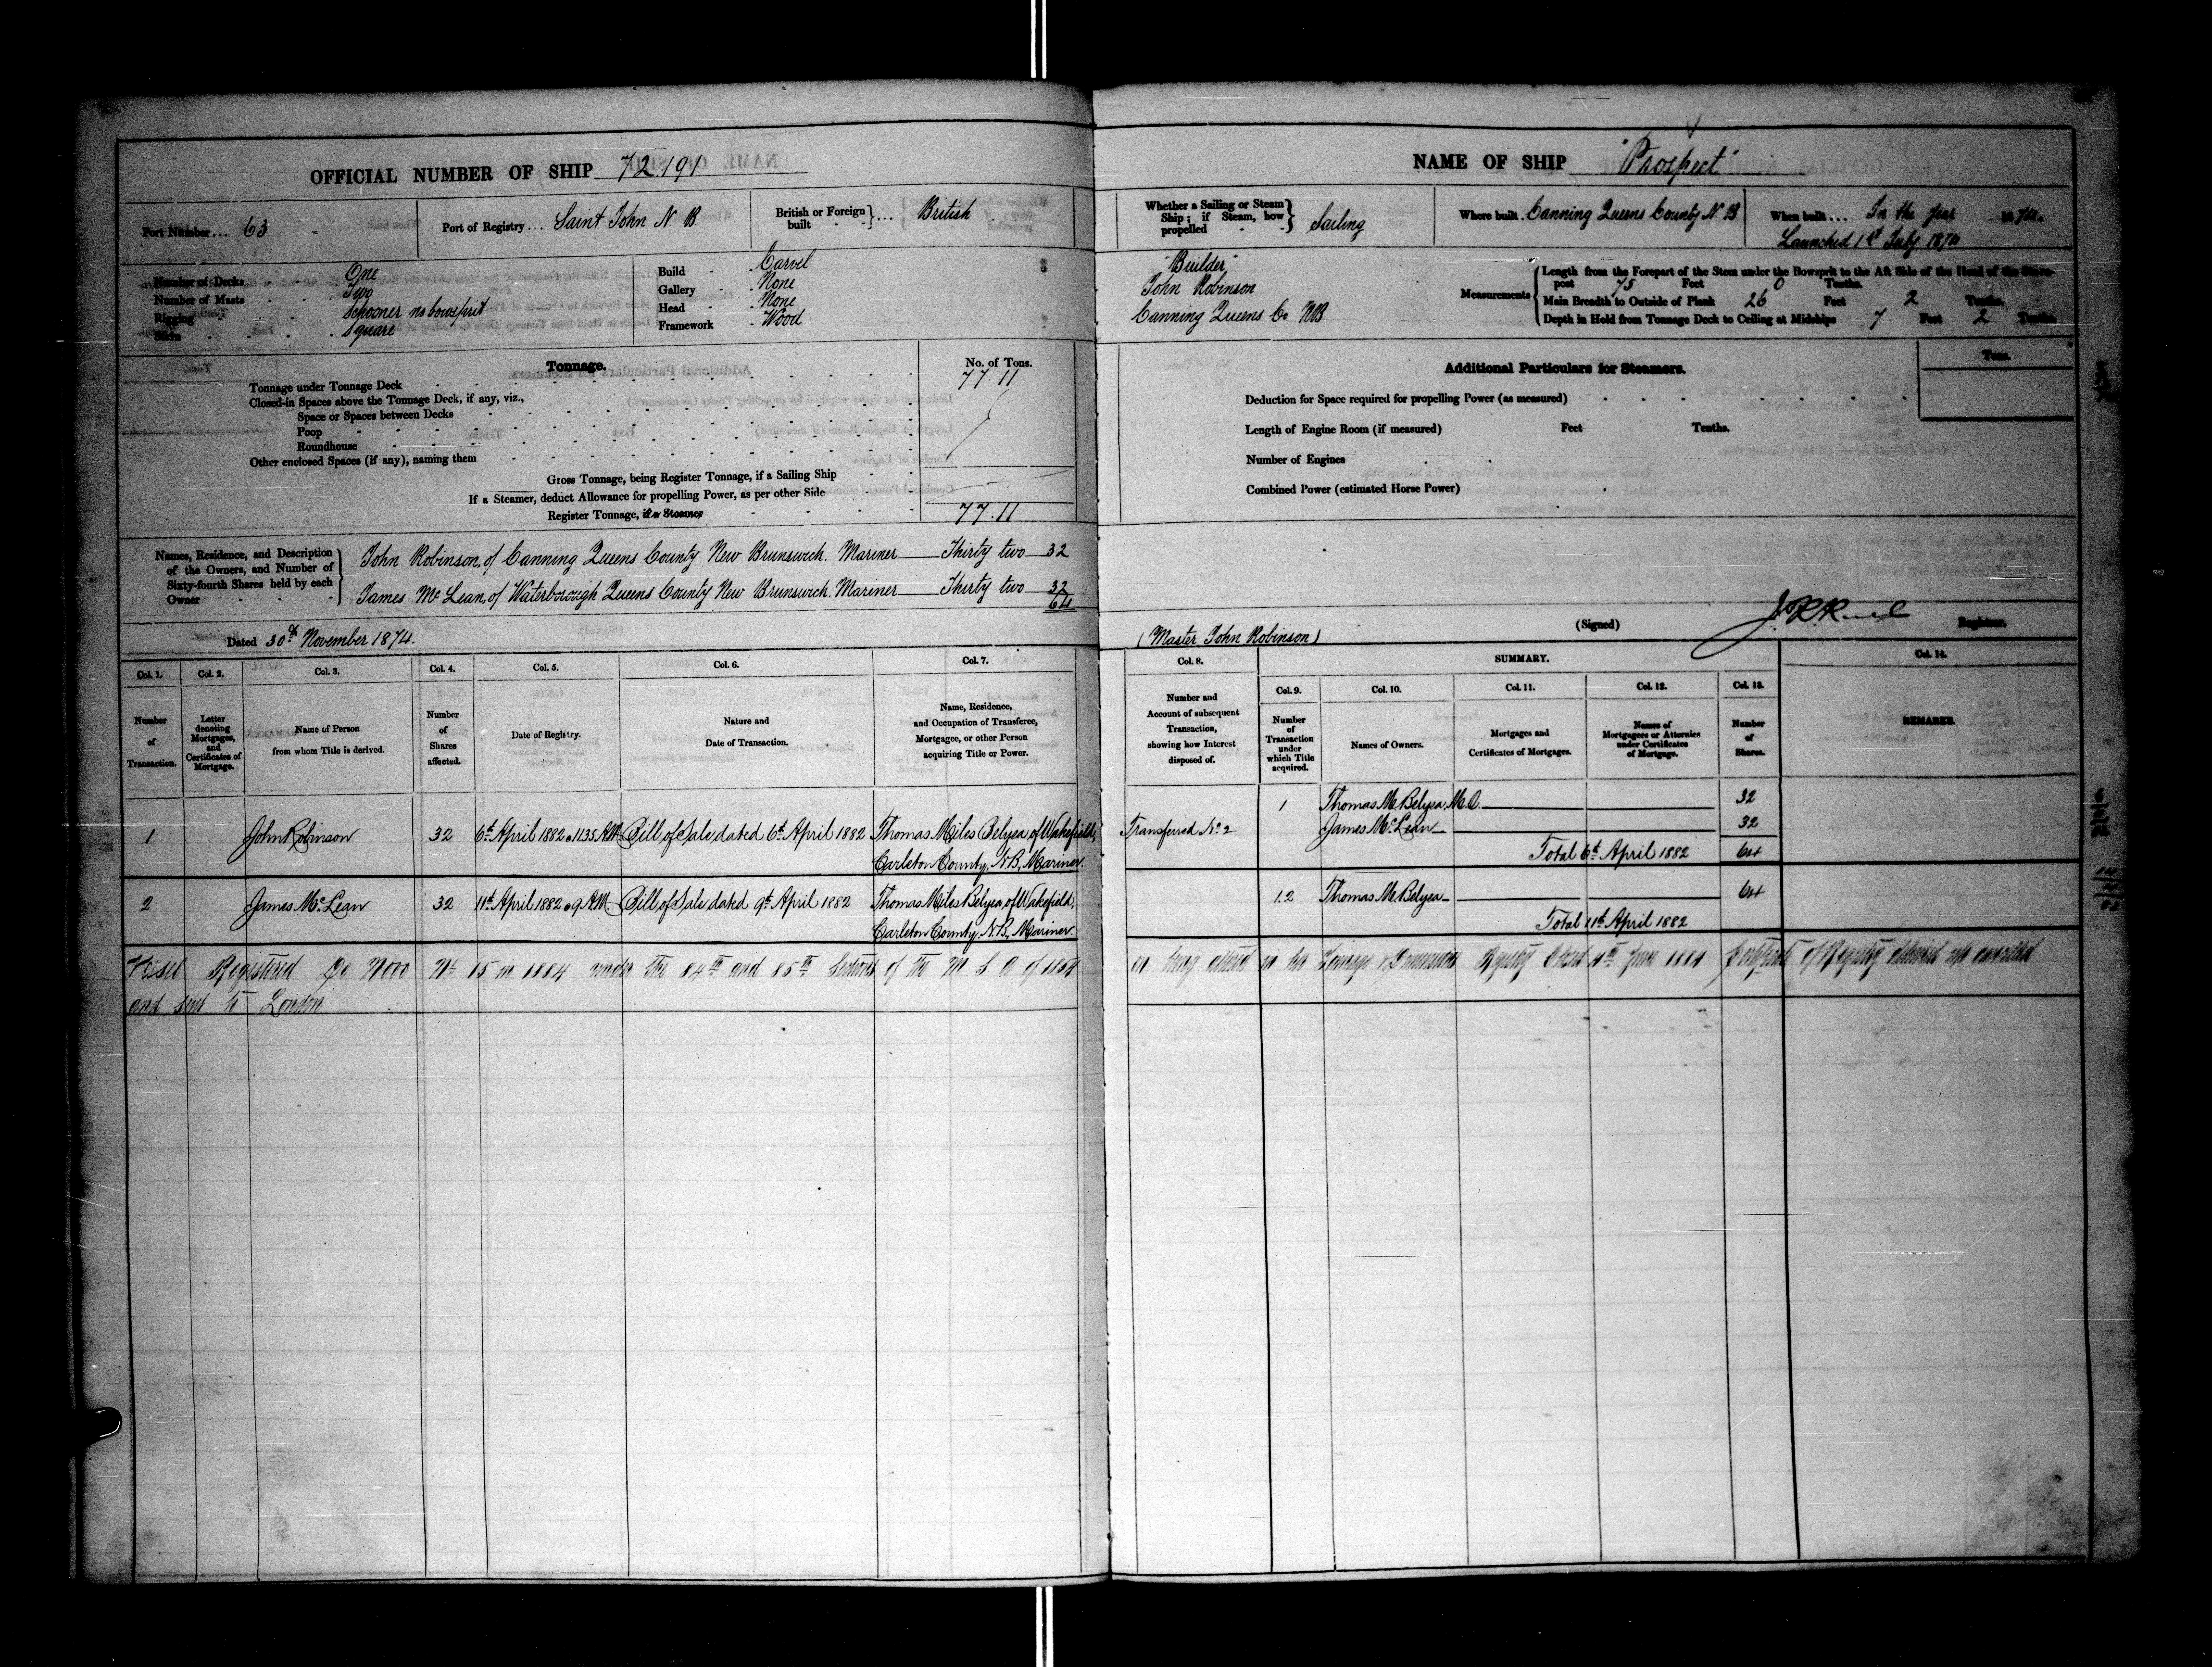 OFFICIAL NUMBER OF SHIP 72.191
Port Number... 63
Port of Registry... Saint John N B
British or Foreign built ... British
Number of Decks One
Number of Masts Two
Rigging Schooner no bowsprit
Stern Square
Build Carvel
Gallery None
Head None
Framework Wood
Tonnage.
No. of Tons.
Tonnage under Tonnage Deck 77.11
Closed-in Spaces above the Tonnage Deck, if any, viz.,
Space or Spaces between Decks
Poop
Roundhouse
Other enclosed Spaces (if any), naming them
Gross Tonnage, being Register Tonnage, if a Sailing Ship
If a Steamer, deduct Allowance for propelling Power, as per other Side
Register Tonnage, if a Steamer 77.11
Names, Residence, and Description of the Owners, and Number of Sixty-fourth Shares held by each Owner
John Robinson, of Canning Queens County New Brunswick. Mariner Thirty two 32
James Mc Lean, of Waterborough Queens County New Brunswick. Mariner Thirty two 32
64
Dated 30th November 1874.
Col. 1. Col. 2. Col. 3. Col. 4. Col. 5. Col. 6. Col. 7.
Number of Transaction.
Letter denoting Mortgages, and Certificates of Mortgage.
Name of Person from whom Title is derived.
Number of Shares affected.
Date of Registry.
Nature and Date of Transaction.
Name, Residence, and Occupation of Transferee, Mortgagee, or other Person acquiring Title or Power.
1 John Robinson 32 6th April 1882 at 11.35 AM Bill of Sale, dated 6th April 1882 Thomas Miles Belyea of Wakefield,
Carleton County, N.B, Mariner.
2 James Mc Lean 32 11th April 1882 at 9 AM Bill of Sale, dated 9th April 1882 Thomas Miles Belyea, of Wakefield,
Carleton County, N.B, Mariner.
Vessel Registered De Novo No 15 in 1884 under the 84th and 85th Sections of the M S A of 1854
and sent to London
NAME OF SHIP "Prospect"
Whether a Sailing or Steam Ship; if Steam, how propelled Sailing
Where built. Canning Queens County N. B
When built... In the year 1874.
Launched 1st July 1874
"Builder"
John Robinson
Canning Queens Co NB
Measurements
Length from the Forepart of the Stem under the Bowsprit to the Aft Side of the Head of the Stern-
post 75 Feet 0 Tenths.
Main Breadth to Outside of Plank 26 Feet 2 Tenths.
Depth in Hold from Tonnage Deck to Ceiling at Midships 7 Feet 2 Tenths.
Additional Particulars for Steamers.
Tons.
Deduction for Space required for propelling Power (as measured)
Length of Engine Room (if measured) Feet Tenths.
Number of Engines
Combined Power (estimated Horse Power)
(Master John Robinson)
(Signed) Registrar.
Col. 8. SUMMARY. Col. 14.
Col. 9. Col. 10. Col. 11. Col. 12. Col. 13.
Number and Account of subsequent Transaction, showing how Interest disposed of.
Number of Transaction under which Title acquired.
Names of Owners.
Mortgages and Certificates of Mortgages.
Names of Mortgagees or Attornies under Certificates of Mortgage.
Number of Shares.
REMARKS.
1 Thomas M. Belyea, M.O. 32
Transferred No. 2 James Mc Lean 32
Total 6th April 1882 64
1.2 Thomas M. Belyea 64
Total 11th April 1882 
in her Tonnage Dimensions Registry Closed June 1884 Certificate of Registry